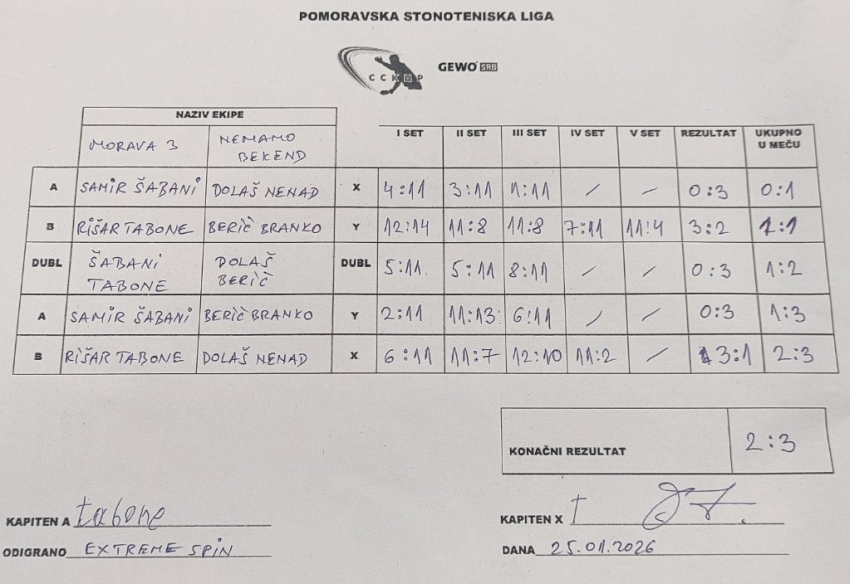 POMORAVSKA STONOTENISKA LIGA
CCKUP GEWO SRB
NAZIV EKIPE
MORAVA 3 NEMAMO BEKEND I SET II SET III SET IV SET V SET REZULTAT UKUPNO U MEČU
A SAMIR ŠABANI DOLAŠ NENAD X 4:11 3:11 1:11 / / 0:3 0:1
B RIŠAR TABONE BERIĆ BRANKO Y 12:14 11:8 11:8 7:11 11:4 3:2 1:1
DUBL ŠABANI TABONE DOLAŠ BERIĆ DUBL 5:11 5:11 8:11 / / 0:3 1:2
A SAMIR ŠABANI BERIĆ BRANKO Y 2:11 11:13 6:11 / / 0:3 1:3
B RIŠAR TABONE DOLAŠ NENAD X 6:11 11:7 12:10 11:2 / 3:1 2:3
KONAČNI REZULTAT 2:3
KAPITEN A tabone KAPITEN X
ODIGRANO EXTREME SPIN DANA 25.01.2026